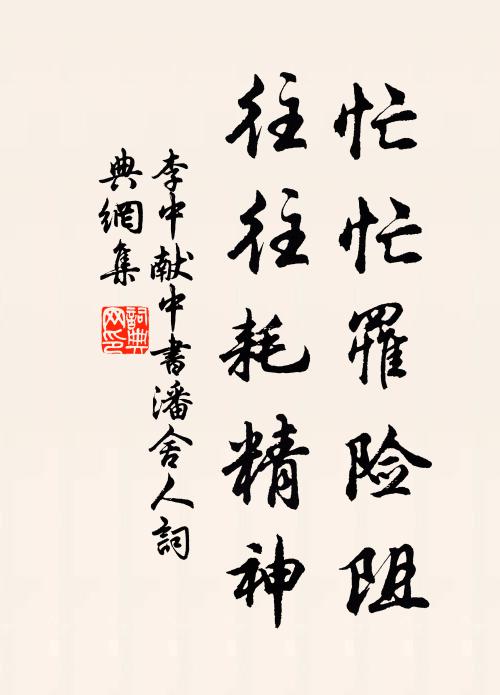 忙忙罹险阻
往往耗精神
李中献中書潘舍人詞
典網集
詞典
网印